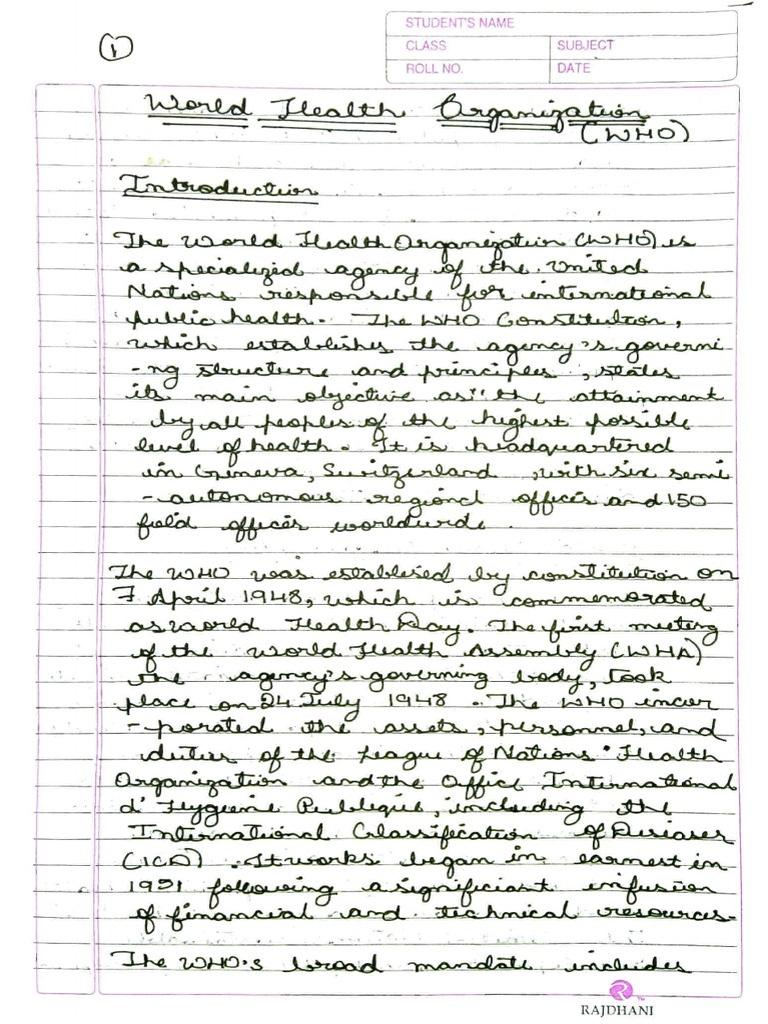 STUDENT'S NAME
CLASS SUBJECT
ROLL NO. DATE
1
World Health Organization
(WHO)
Introduction
The World Health Organization (WHO) is
a specialized agency of the United
Nations responsible for international
public health. The WHO Constitution,
which establishes the agency's governi
-ng structure and principles, states
its main objective as "the attainment
by all peoples of the highest possible
level of health. It is headquartered
in Geneva, Switzerland, with six semi
-autonomous regional offices and 150
field offices worldwide.
The WHO was establised by constitution on
7 April 1948, which is commemorated
as World Health Day. The first meeting
of the World Health Assembly (WHA)
the agency's governing body, took
place on 24 July 1948. The WHO incor
-porated the assets, personnel, and
duties of the League of Nations' Health
Organization and the Office International
d' Hygiene Publique, including the
International Classification of Diseases
(ICD). It works began in earnest in
1951 following a significiant infusion
of financial and technical resources.
The WHO's broad mandate includes
RAJDHANI